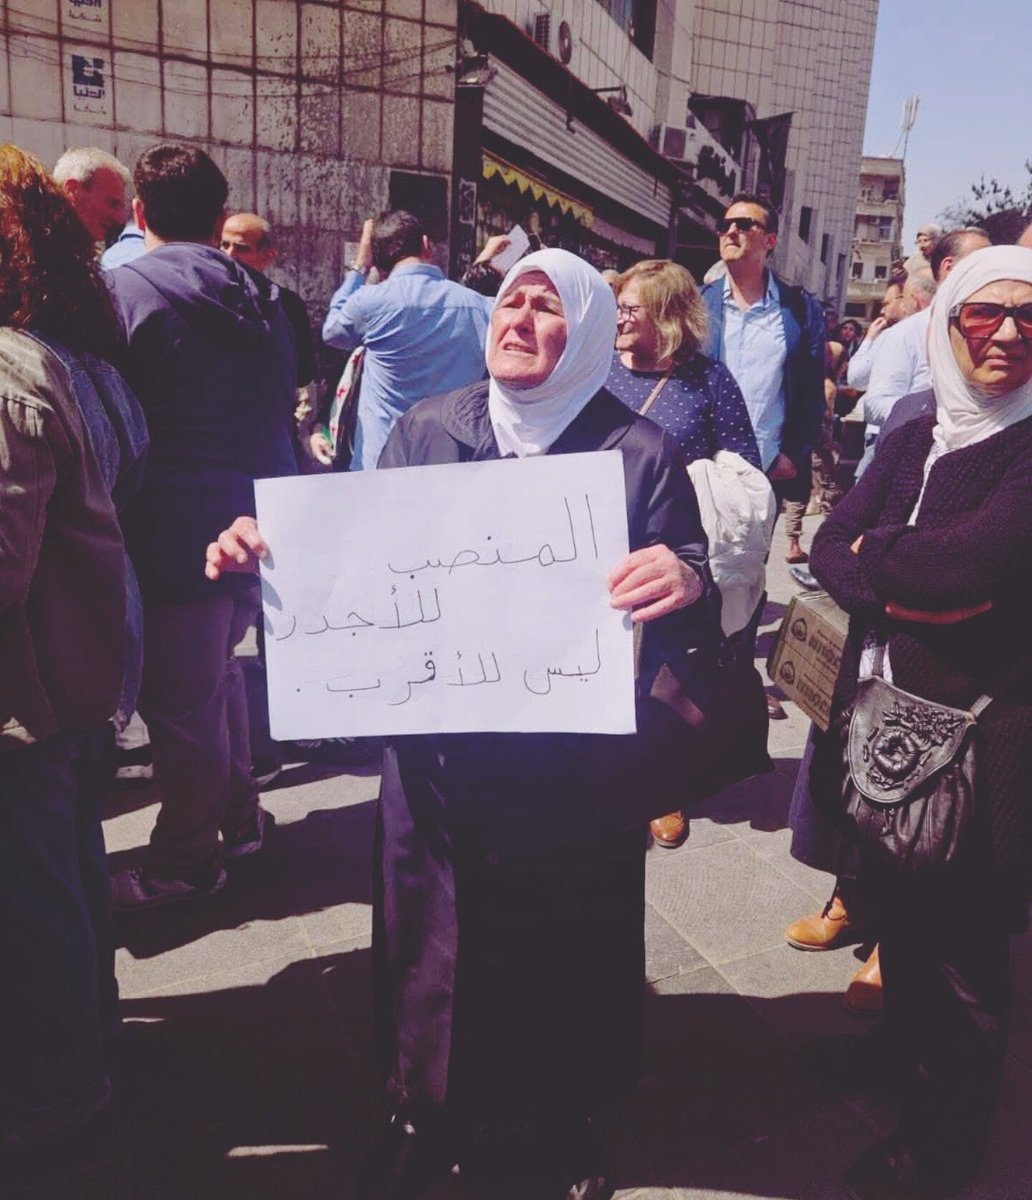 المنصب
للأجدر
ليس للأقرب.